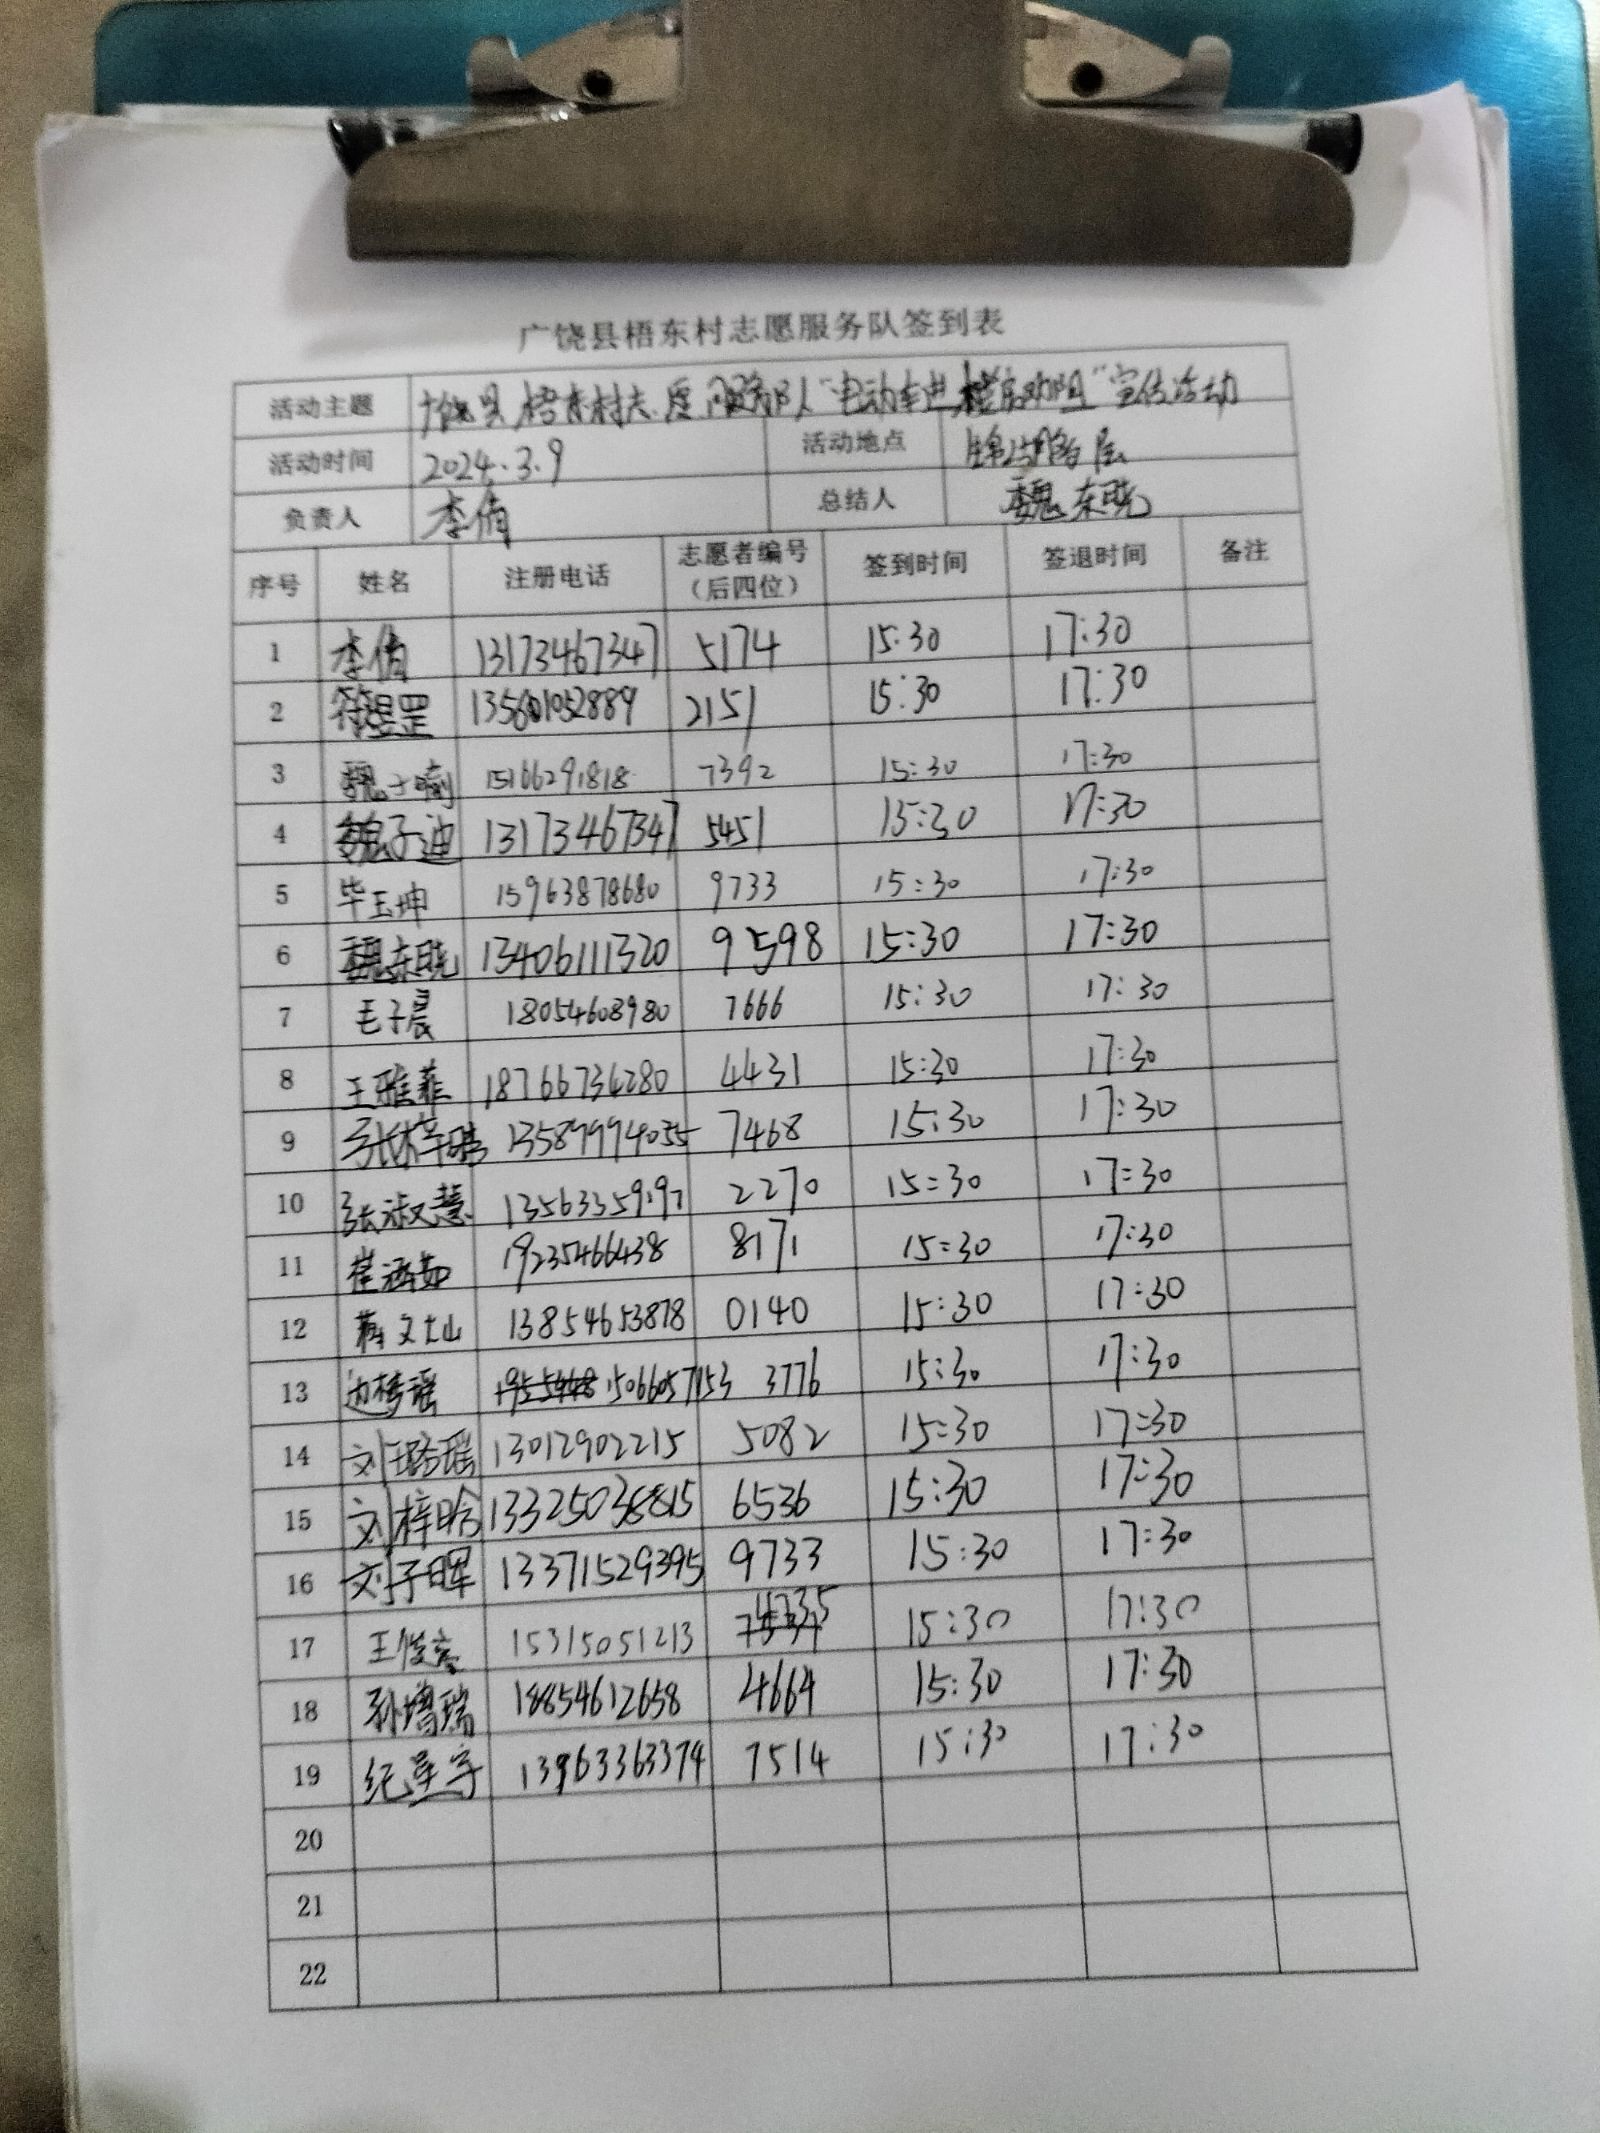 广饶县梧东村志愿服务队签到表
活动主题 广饶县梧东村志愿服务队“电动车进楼宇劝阻”宣传活动
活动时间 2024.3.9 活动地点
负责人 李倩 总结人 魏东晓
序号 姓名 注册电话 志愿者编号（后四位） 签到时间 签退时间 备注
1 李倩 13173467347 5174 15:30 17:30
2 2151 15:30 17:30
3 魏子喻 15166291818 7392 15:30 17:30
4 魏子迪 13173467347 5451 15:30 17:30
5 毕玉坤 15963878680 9733 15:30 17:30
6 魏东晓 13406111320 9598 15:30 17:30
7 毛子晨 18054608980 7666 15:30 17:30
8 王雅菲 18766734280 4431 15:30 17:30
9 13589994035 7468 15:30 17:30
10 张淑慧 13563359197 2270 15:30 17:30
11 崔涵茹 19235466438 8171 15:30 17:30
12 13854653878 0140 15:30 17:30
13 边梦瑶 15066057153 3776 15:30 17:30
14 刘璐瑶 13012902215 5082 15:30 17:30
15 刘梓晗 13325038815 6536 15:30 17:30
16 刘子晖 13371529395 9733 15:30 17:30
17 15315051213 4735 15:30 17:30
18 孙增瑞 18854612658 4664 15:30 17:30
19 纪星宇 13963363374 7514 15:30 17:30
20
21
22